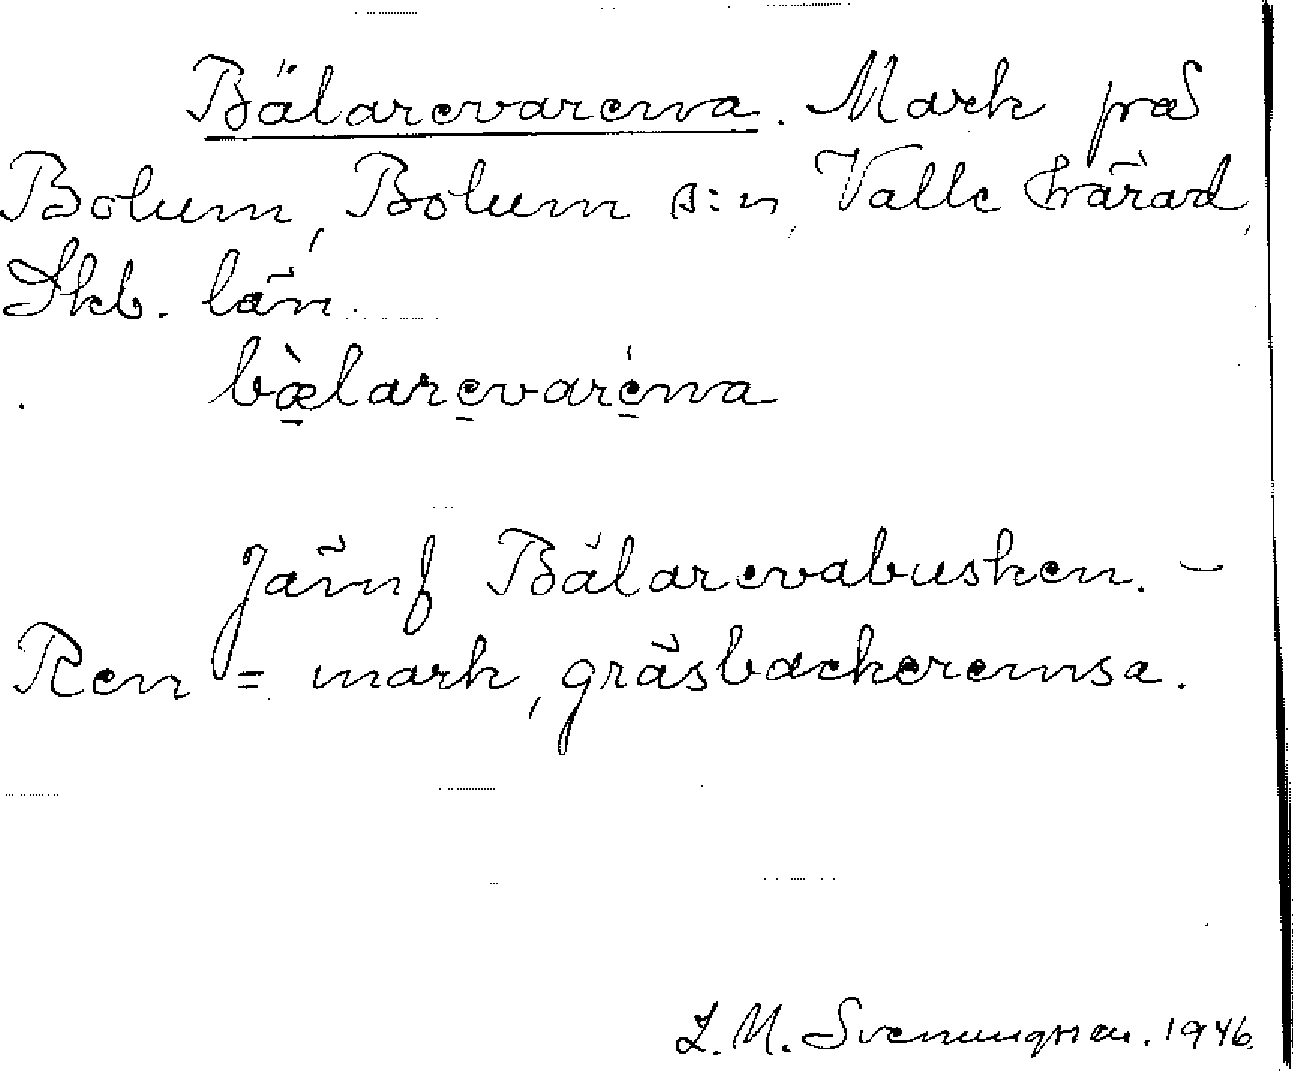 Bälarevarena. Mark på
Bolum, Bolum s:n, Valle härad,
Skb. län.
bælarevarena
Jämf Bälarevabusken. -
Ren = mark, gräsbackeremsa.
L. M. Svenungsson. 1946.